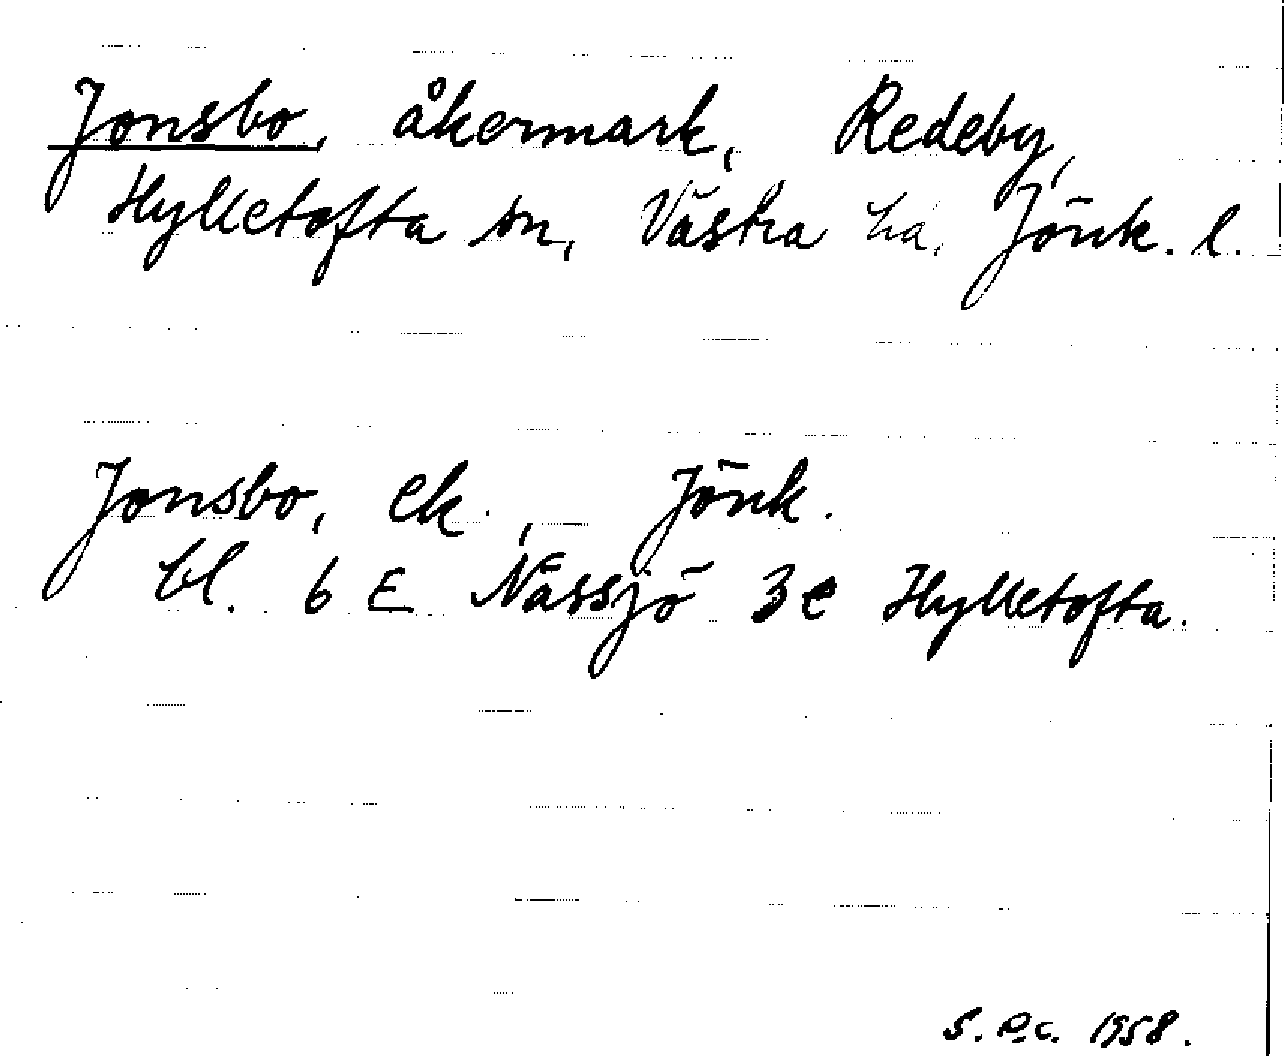 Jonsbo, åkermark, Redeby,
Hylletofta sn, Västra hd, Jönk. l.
Jonsbo, ek., Jönk.
bl. 6 E Nässjö 3e Hylletofta.
S. P.C. 1958.